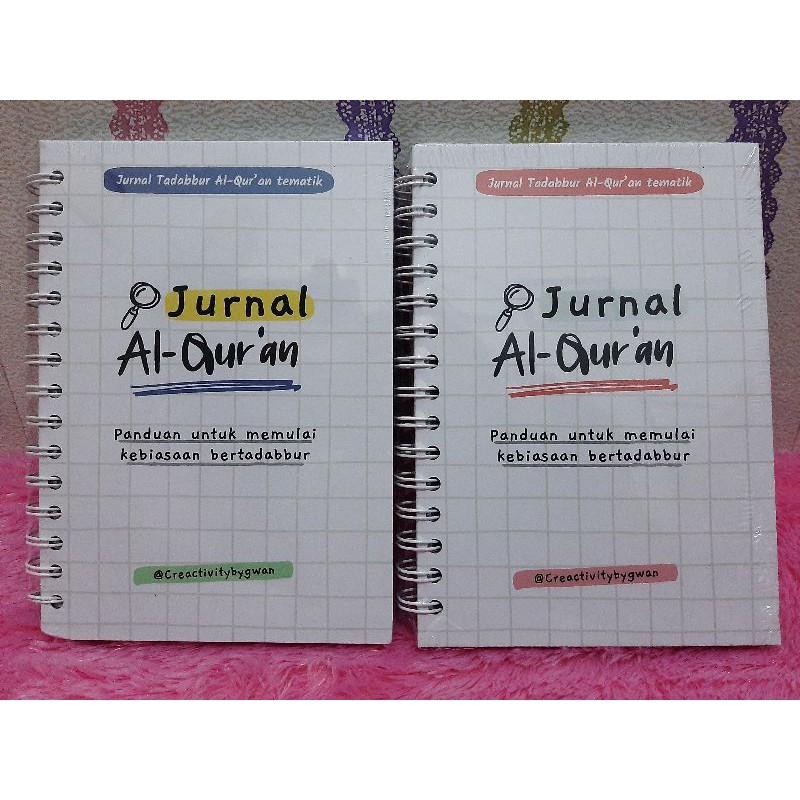 Jurnal Tadabbur Al-Qur'an tematik
Jurnal
Al-Qur'an
Panduan untuk memulai
kebiasaan bertadabbur
@Creactivitybygwan
Jurnal Tadabbur Al-Qur'an tematik
Jurnal
Al-Qur'an
Panduan untuk memulai
kebiasaan bertadabbur
@Creactivitybygwan